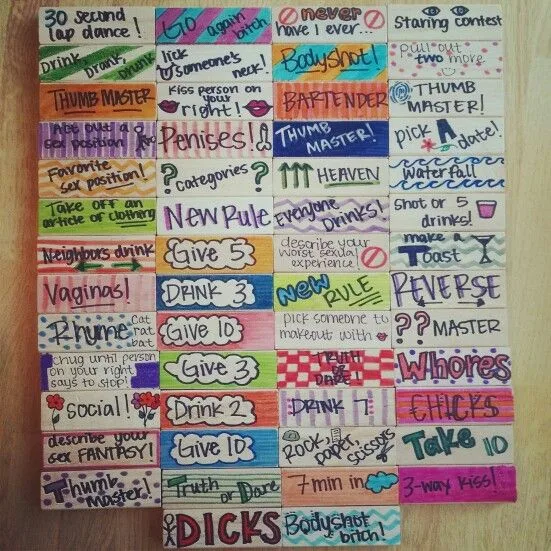 30 second
lap dance!
GO again
bitch
never
have I ever...
Staring contest
Drink, Drank, Drunk
lick
someone's
neck!
Bodyshot!
pull out
two more
THUMB MASTER
kiss person on
your
right!
BARTENDER
THUMB
MASTER!
Act out a
sex position
Penises!
THUMB
MASTER!
pick A
date!
Favorite
sex position!
? categories ?
HEAVEN
Waterfall
Take off an
article of clothing
New Rule
Everyone
Drinks!
shot or 5
drinks!
Neighbours drink
Give 5
describe your
worst sexual
experience!
make a
Toast
Vaginas!
DRINK 3
New
RULE
REVERSE
Rhyme
Cat
rat
bat
Give 10
pick someone to
makeout with
?? MASTER
chug until person
on your right
says to stop!
Give 3
TRUTH
OR
DARE!
Whores
social!
Drink 2
DRINK 7
CHICKS
describe your
sex FANTASY!
Give 10
Rock,
paper,
scissors
Take 10
Thumb
master!
Truth
or Dare
7 min in
3-way kiss!
DICKS
Bodyshot
bitch!